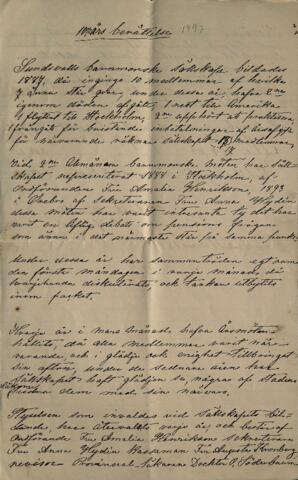 Mårs berättelse 1897
Sundsvalls barnmorske Sällskap bildades
1887, då ingingo 10 medlemmar af hvilka
7 ännu stå qvar, under dessa år, hafva 2ne
igenom döden afgått, 1 rest till Amerika
1 flyttat till Stockholm, 2ne upphört att praktisera,
1 frångått för bristande inbetalningar af årsafgift
för närvarande räknar sällskapet medlemmar,
18
Vid 2ne Allmänna barnmorske möten har Säll-
skapet representerat 1888 i Stockholm, af
Ordföranden Fru Amalia Henriksson, 1893
i Örebro af Sekreteraren Fru Anna Hydén
dessa möten har varit intressanta ty det har
varit en liflig debatt om pensions frågan
som ännu i det närmaste står på samma punkt
Under dessa år har sammanträden egt rum
den första måndagen i varje månad, då
diskuterats, och tankar utbytts
inom facket.
Hvarje år i Mars månad, hafva Årsmöten
hållits, då alla medlemmar varit när-
varande, och i glädje och enighet tillbringat
sin afton, under de sednare åren har
Sällskapet haft glädjen se några af Stadens
läkare dem med sin närvaro.
Styrelsen som invaldes vid Sällskapets bil-
dande, har återvalts varje år, och består af
Ordförande Fru Amalia Henriksson Sekreterare
Fru Anna Hydén Kassaman Fru Augusta Kronberg
revisor Provincial-Läkaren Docktor O. Söderbaum